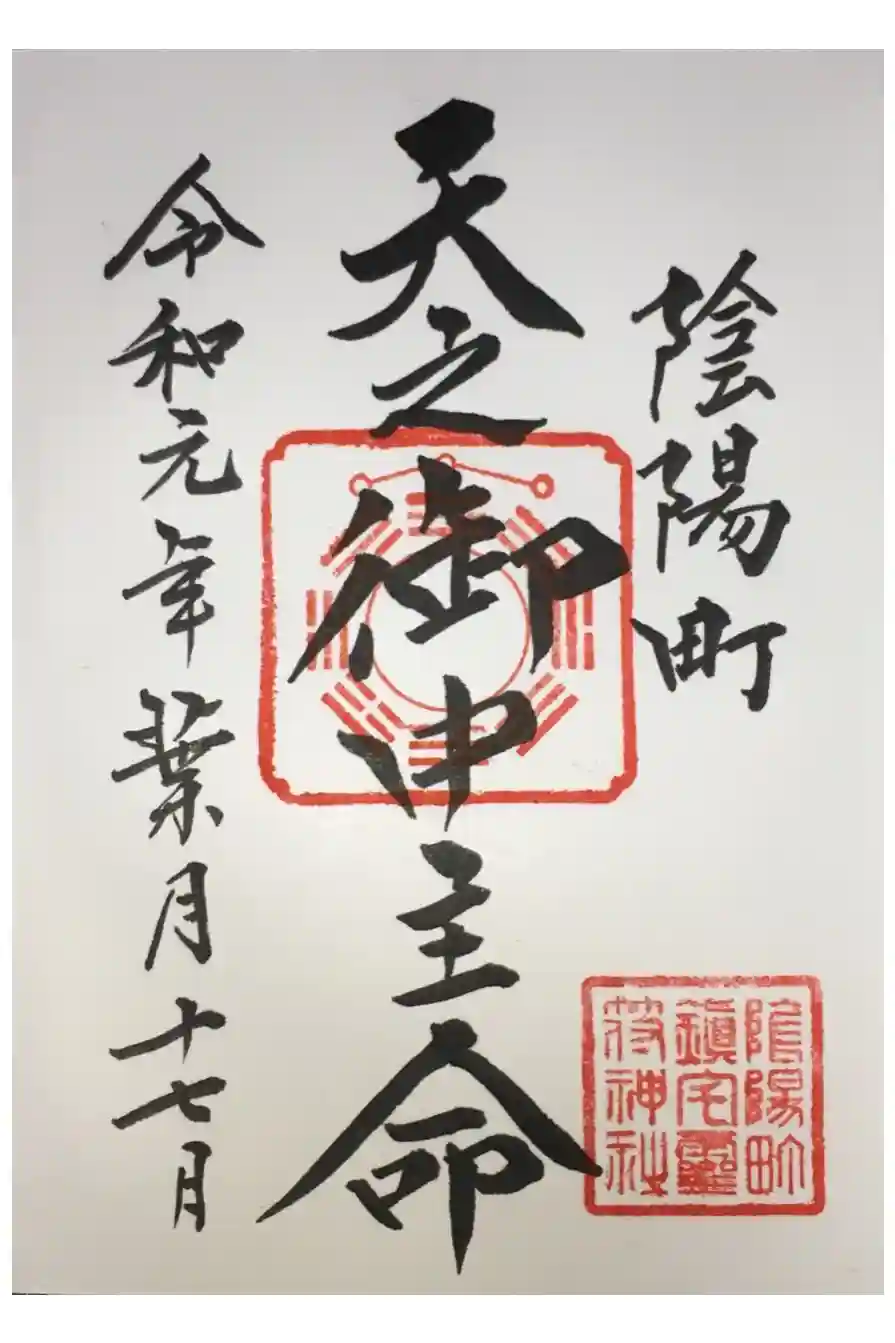 陰陽町
天之御中主命
令和元年葉月十七月
陰陽町
鎮宅靈
符神社